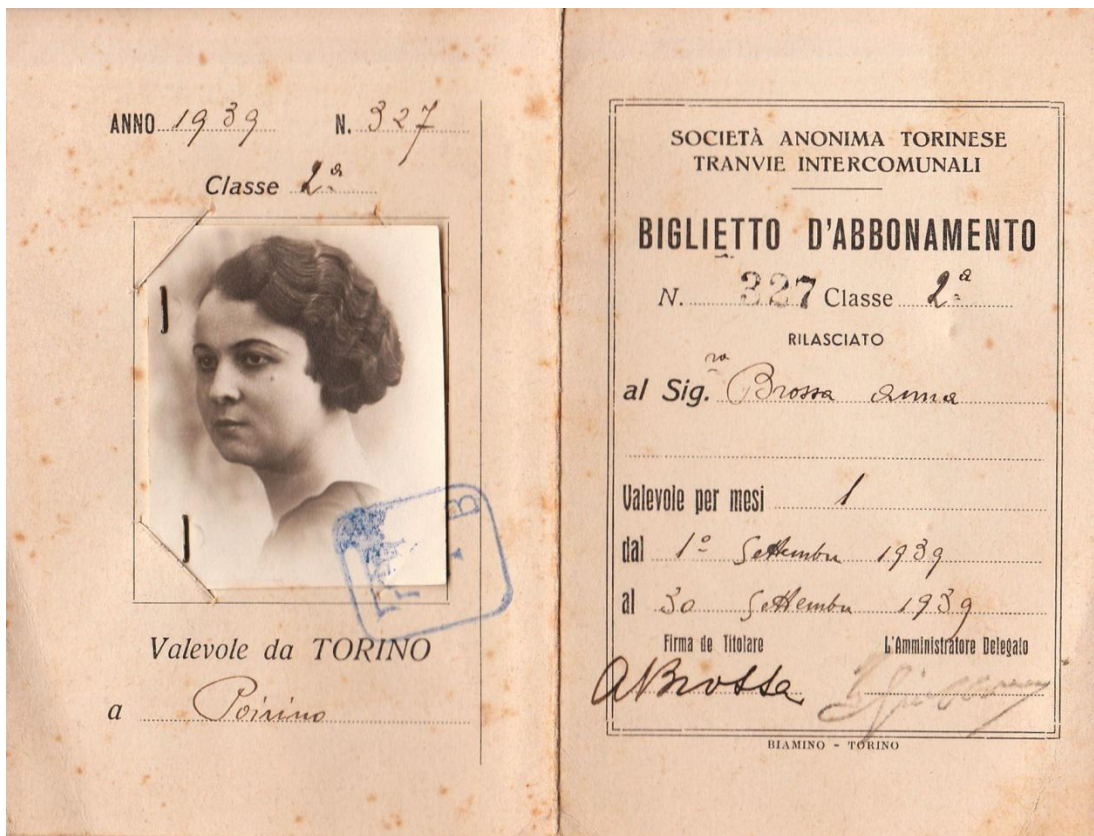 ANNO 1939 N. 327
Classe 2ª
Valevole da TORINO
a Poirino
SOCIETÀ ANONIMA TORINESE
TRANVIE INTERCOMUNALI
BIGLIETTO D'ABBONAMENTO
N. 327 Classe 2ª
RILASCIATO
al Sig.ra Brossa Anna
Valevole per mesi 1
dal 1º Settembre 1939
al 30 Settembre 1939
Firma de Titolare L'Amministratore Delegato
ABrossa
BIAMINO - TORINO